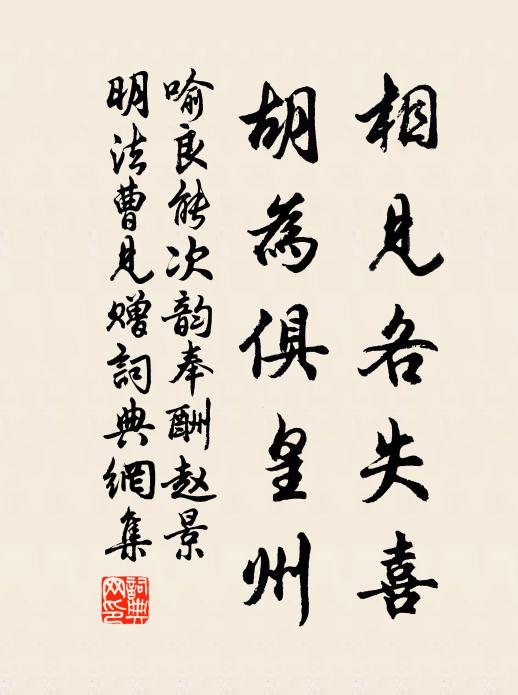 相見各失喜
胡為俱皇州
喻良能次韵奉酬赵景
明法曹見赠詞典網集
詞典网印